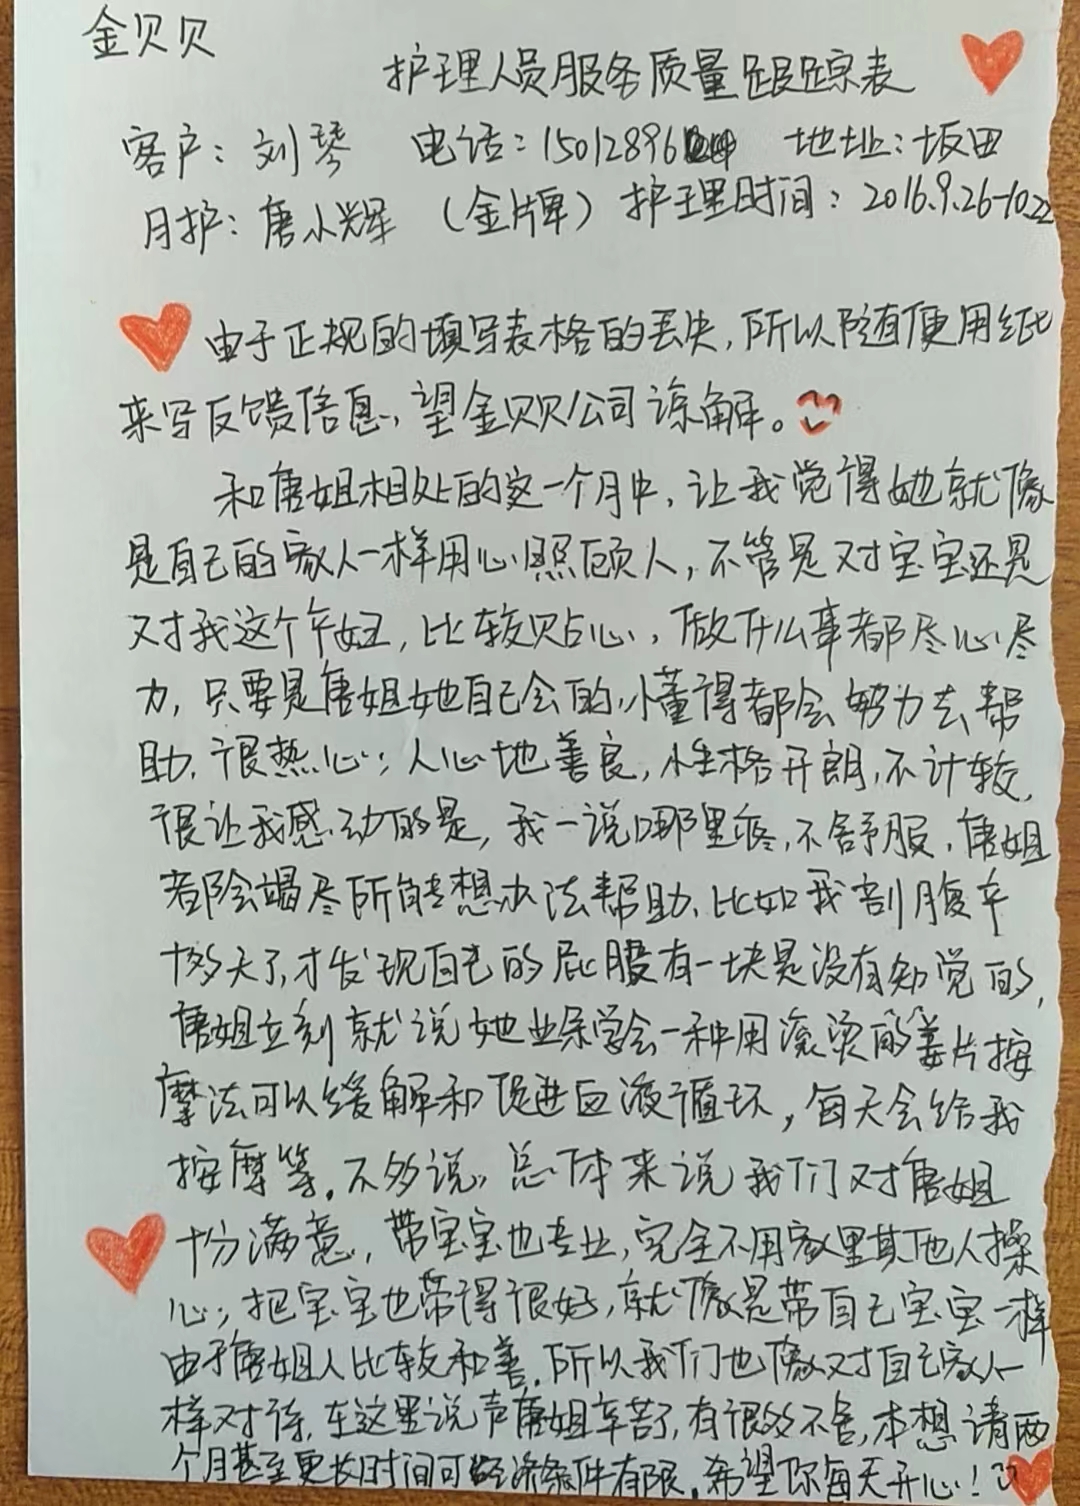 金贝贝
护理人员服务质量跟踪表
客户：刘琴 电话：15012896 地址：坂田
月护：唐小辉（金牌）护理时间：2016.9.26-10.22
由于正规的填写表格的丢失，所以随便用纸
来写反馈信息，望金贝贝公司谅解。
和唐姐相处的这一个月中，让我觉得她就像
是自己的家人一样用心照顾人，不管是对宝宝还是
对我这个午妇，比较贴心，做什么事都尽心尽
力，只要是唐姐她自己会的，懂得都会努力去帮
助，很热心；人心地善良，性格开朗，不计较，
很让我感动的是，我一说哪里疼，不舒服，唐姐
都会竭尽所能想办法帮助，比如我剖腹产
十多天了，才发现自己的屁股有一块是没有知觉的，
唐姐立刻就说她业余学会一种用滚烫的姜片按
摩法可以缓解和促进血液循环，每天会给我
按摩等。不多说，总体来说我们对唐姐
十分满意，带宝宝也专业，完全不用家里其他人操
心；把宝宝也带得很好，就像是带自己宝宝一样
由于唐姐人比较和善，所以我们也像对自己家人一
样对待，在这里说声唐姐辛苦了，有很多不舍，本想请两
个月甚至更长时间可经济条件有限。希望你每天开心！